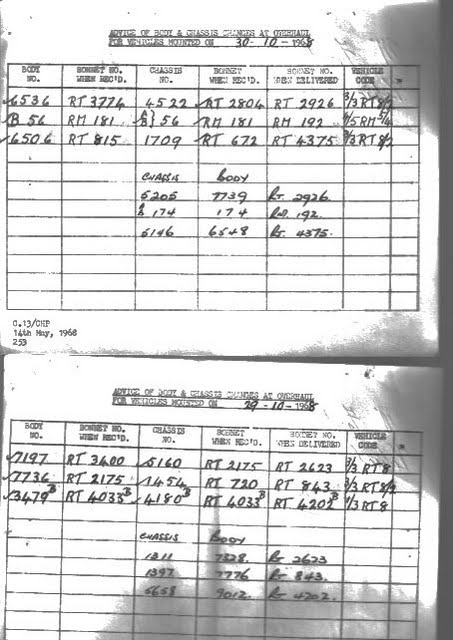 ADVICE OF BODY & CHASSIS CHANGES AT OVERHAUL
FOR VEHICLES MOUNTED ON 30-10-1968
BODY NO. BONNET NO. WHEN REC'D. CHASSIS NO. BONNET WHEN REC'D. BONNET NO. WHEN DELIVERED VEHICLE CODE
6536 RT 3774 4522 RT 2804 RT 2926 3/3 RT 8/2
B 56 RM 181 A B } 56 RM 181 RM 192 4/5 RM 5/4
6506 RT 815 1709 RT 672 RT 4375 3/3 RT 8/2
CHASSIS BODY
5205 7739 RT 2926
A B 174 174 RM 192.
5146 6548 RT 4375.
C.13/CHP
14th May, 1968
253
ADVICE OF BODY & CHASSIS CHANGES AT OVERHAUL
FOR VEHICLES MOUNTED ON 29-10-1968
BODY NO. BONNET NO. WHEN REC'D. CHASSIS NO. BONNET WHEN REC'D. BONNET NO. WHEN DELIVERED VEHICLE CODE
7197 RT 3400 5160 RT 2175 RT 2623 3/3 RT 8
7736 RT 2175 1454 RT 720 RT 843 3/3 RT 8/2
3479 B RT 4033 B 4180 B RT 4033 B RT 4202 B 1/3 RT 8
CHASSIS BODY
1311 7328 RT 2623
1397 7776 RT 843.
5658 9012 RT 4202.